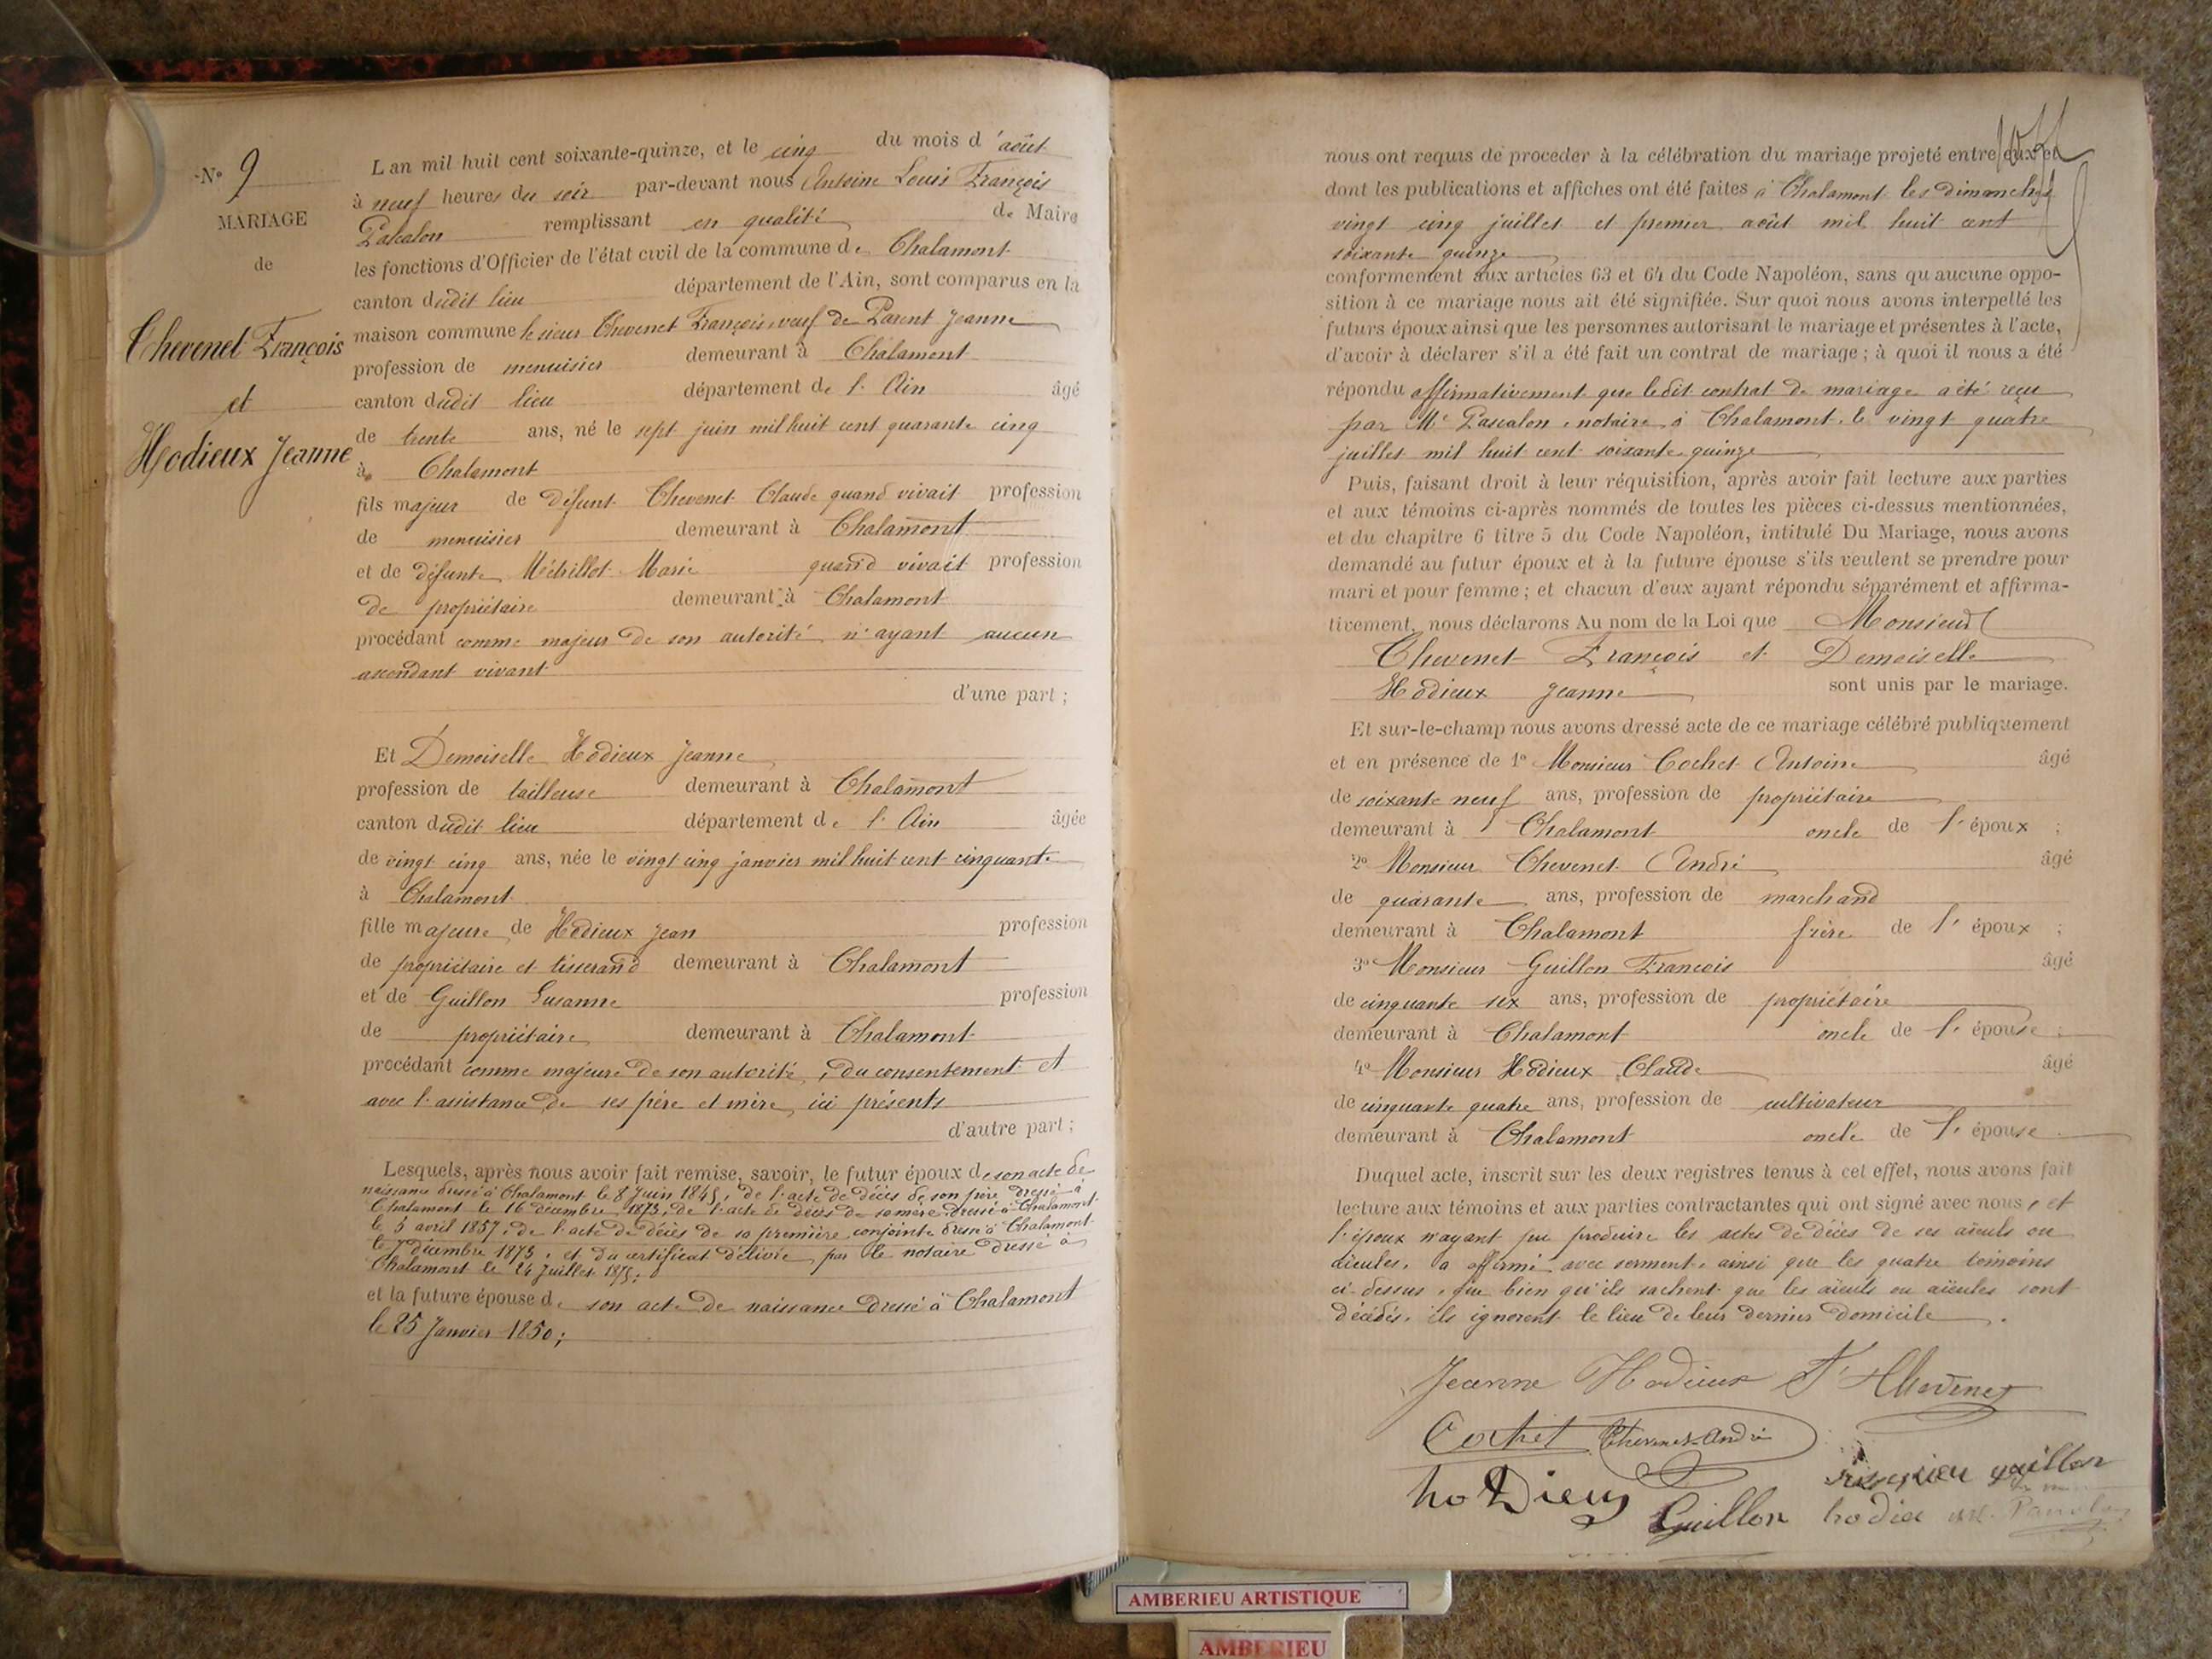 N° 9
MARIAGE
de
Chevenet François
et
Hodieux Jeanne
L'an mil huit cent soixante-quinze, et le cinq du mois d'août
à neuf heures du soir par-devant nous Antoine Louis François
Pascalon remplissant en qualité de Maire
les fonctions d'Officier de l'état civil de la commune de Chalamont
canton dudit lieu département de l'Ain, sont comparus en la
maison commune le sieur Chevenet François veuf de Parent Jeanne
profession de menuisier demeurant à Chalamont
canton dudit lieu département de l'Ain âgé
de trente ans, né le sept juin mil huit cent quarante cinq
à Chalamont
fils majeur de défunt Chevenet Claude quand vivait profession
de menuisier demeurant à Chalamont
et de défunte Métrillot Marie quand vivait profession
de propriétaire demeurant à Chalamont
procédant comme majeur de son autorité n'ayant aucun
ascendant vivant
d'une part ;
Et Demoiselle Hodieux Jeanne
profession de tailleuse demeurant à Chalamont
canton dudit lieu département de l'Ain âgée
de vingt cinq ans, née le vingt cinq janvier mil huit cent cinquante
à Chalamont
fille majeure de Hodieux Jean profession
de propriétaire et tisserand demeurant à Chalamont
et de Guillon Susanne profession
de propriétaire demeurant à Chalamont
procédant comme majeure de son autorité, du consentement et
avec l'assistance de ses père et mère, ici présents
d'autre part ;
Lesquels, après nous avoir fait remise, savoir, le futur époux de son acte de
naissance dressé à Chalamont le 8 Juin 1845, de l'acte de décès de son père dressé à
Chalamont le 16 décembre 1873, de l'acte de décès de sa mère dressé à Chalamont
le 5 avril 1857, de l'acte de décès de sa première conjointe dressé à Chalamont
le 7 décembre 1873, et du certificat délivré par le notaire dressé à
Chalamont le 24 Juillet 1875;
et la future épouse de son acte de naissance dressé à Chalamont
le 25 Janvier 1850;
nous ont requis de proceder à la célébration du mariage projeté entre eux et
dont les publications et affiches ont été faites à Chalamont les dimanches
vingt cinq juillet et premier août mil huit cent
soixante quinze
conformément aux articles 63 et 64 du Code Napoléon, sans qu'aucune oppo-
sition à ce mariage nous ait été signifiée. Sur quoi nous avons interpellé les
futurs époux ainsi que les personnes autorisant le mariage et présentes à l'acte,
d'avoir à déclarer s'il a été fait un contrat de mariage ; à quoi il nous a été
répondu affirmativement que ledit contrat de mariage a été reçu
par Me Pascalon, notaire à Chalamont, le vingt quatre
juillet mil huit cent soixante quinze
Puis, faisant droit à leur réquisition, après avoir fait lecture aux parties
et aux témoins ci-après nommés de toutes les pièces ci-dessus mentionnées,
et du chapitre 6 titre 5 du Code Napoléon, intitulé Du Mariage, nous avons
demandé au futur époux et à la future épouse s'ils veulent se prendre pour
mari et pour femme ; et chacun d'eux ayant répondu séparément et affirma-
tivement, nous déclarons Au nom de la Loi que Monsieur
Chevenet François et Demoiselle
Hodieux Jeanne sont unis par le mariage.
Et sur-le-champ nous avons dressé acte de ce mariage célébré publiquement
et en présence de 1° Monsieur Cochet Antoine âgé
de soixante neuf ans, profession de propriétaire
demeurant à Chalamont oncle de l'époux ;
2° Monsieur Chevenet André âgé
de quarante ans, profession de marchand
demeurant à Chalamont frère de l'époux ;
3° Monsieur Guillon François âgé
de cinquante six ans, profession de propriétaire
demeurant à Chalamont oncle de l'épouse ;
4° Monsieur Hodieux Claude âgé
de cinquante quatre ans, profession de cultivateur
demeurant à Chalamont oncle de l'épouse
Duquel acte, inscrit sur les deux registres tenus à cet effet, nous avons fait
lecture aux témoins et aux parties contractantes qui ont signé avec nous, et
l'époux n'ayant pu produire les actes de décès de ses aïeuls ou
aïeules, a affirmé avec serment, ainsi que les quatre témoins
ci-dessus, que bien qu'ils sachent que les aïeuls ou aïeules sont
décédés, ils ignorent le lieu de leur dernier domicile.
Jeanne Hodieux F Chevenet
Cochet Chevenet André
hodieux guillon
Guillon hodieu
AMBERIEU ARTISTIQUE
AMBERIEU